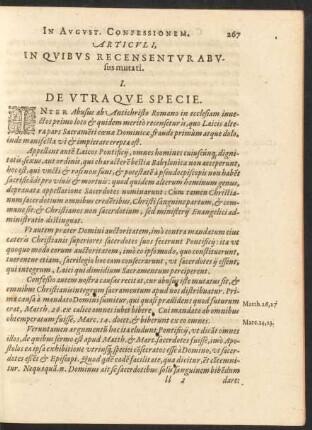 IN AVGVST. CONFESSIONEM. 267
ARTICVLI,
IN QVIBVS RECENSENTVR ABV-
sus mutati.
I.
DE VTRAQVE SPECIE.
INTER Abusus ab Antichristo Romano in ecclesiam inve-
ctos primo loco & quidem meritò recensetur is, quo Laicis alte-
ra pars Sacramēti cœnæ Dominicæ, fraude primùm atque dolo,
inde manifesta vi & impietate erepta est.
Appellant autē Laicos Pontificij, omnes homines cuiuscunq; dignita-
tis, sexus, aut ordinis, qui charactere bestiæ Babylonicæ non accepere,
hoc est, qui vncti & rasi non sunt, & potestatē à pseudoepiscopis non habēt
sacrificādi pro viuis & mortuis: quod quidem alterum hominum genus,
deprauata appellatione Sacerdotes nominarunt: Cum tamen Christia-
num sacerdotium omnibus creatiōibus, Christi sanguine partum, & com-
mune sit: & Christianos non sacerdotium, sed ministerij Euangelici ad-
ministratio distinguat.
Vt autem præter Domini auctoritatem, imò contra mandatum eius
cæteris Christianis superiores sacerdotes suos fecerunt Pontificij: ita vt
quoquo modo eorum auctoritatem, imò eo ipso modo, quo constituerunt,
tuerentur etiam, sacrilegio hoc eum consecrarunt, vt sacerdotes ij essent,
qui integrum, Laici qui dimidium Sacramentum perciperent.
Confessio autem nostra causas recitat, cur abusus iste mutatus sit, &
omnibus Christianis integrum sacramentum apud nos distribuatur. Pri-
ma causa à mandato Domini sumitur, qui quasi præuidens quod futurum
erat, Matth. 26. ex calice omnes iubet bibere. Cui mandato ab omnibus Matth. 26,27
obtemperatum fuisse, Marc. 14. docet, & biberunt ex eo omnes. Marc. 14,23.
Veruntamen argumentū hoc ita eludunt Pontificij, vt dicāt omnes
illos, de quibus sermo est apud Matth. & Marc. sacerdotes fuisse, imò Apo-
stolos ex ipsa exhibitione vtriusq; speciei cōsecratos esse à Domino, vt sacer-
dotes essēt & Episcopi. Quod quā eadē facilitate, qua dicitur, & cōtemni-
tur. Nequaquā n. Dominus ait se sacerdotibus solis sanguinem bibēdum
ll 2 dare: